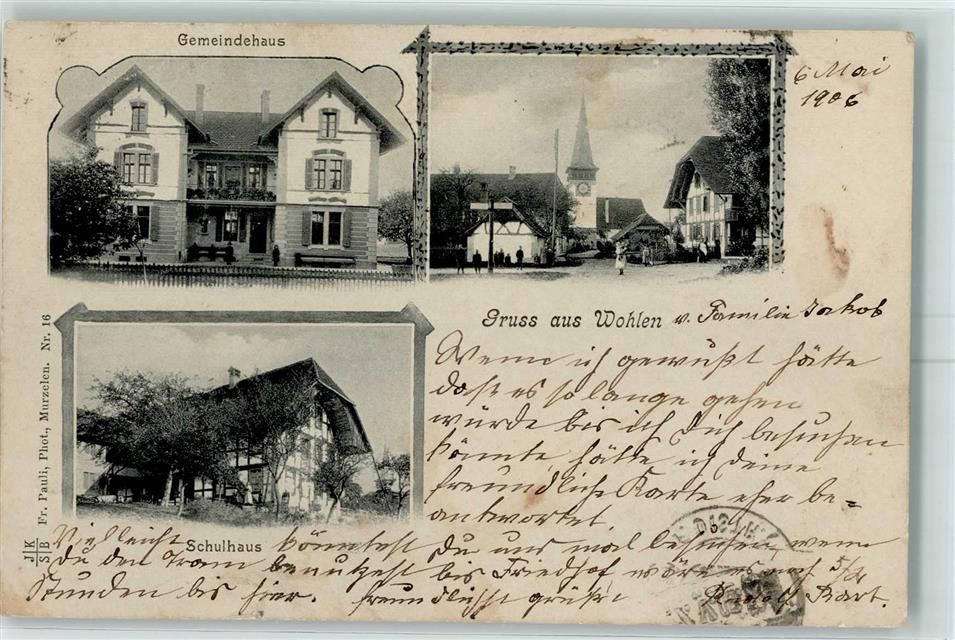 Gemeindehaus
6 Mai
1906
Gruss aus Wohlen v. Familie Jakob
Wenn ich gewußt hätte
daß es so lange gehen
würde bis ich Dich besuchen
könnte hätte ich deine
freundliche Karte eher be=
antwortet.
Vielleicht Schulhaus könntest Du uns mal besuchen, wenn
Du den Tram benutzest bis Friedhof, wäre es noch
Stunden bis hier. freundlichst grüßt Rudolf
Fr. Pauli, Phot., Murzelen. Nr. 16
J K
S B